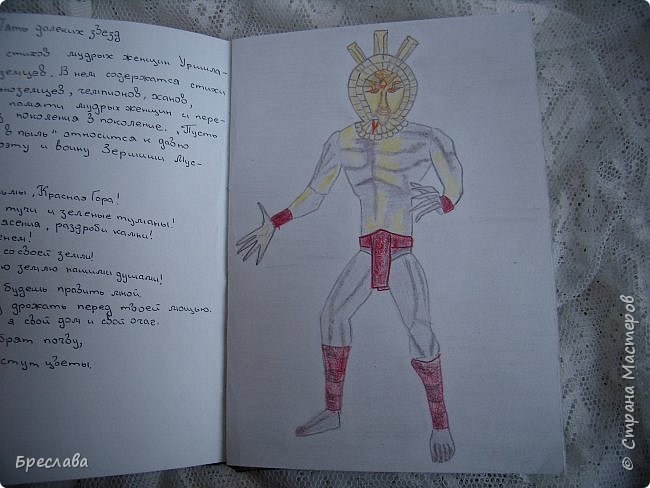 далеких звезд
стихов мудрых женщин Уршила-
земцев. В нем содержатся стихи
ноземцев, чемпионов, ханов,
памяти мудрых женщин и пере-
поколения в поколение. „Пусть
в пыль" относится к давно
поэту и воину Зершими Мус-
Красная Гора!
тучи и зеленые туманы!
раздроби камни!
со своей земли!
землю нашими душами!
будешь править мной.
дрожать перед твоей мощью.
я свой дом и свой очаг.
почву,
цветы.
Бреслава
© Страна Мастеров